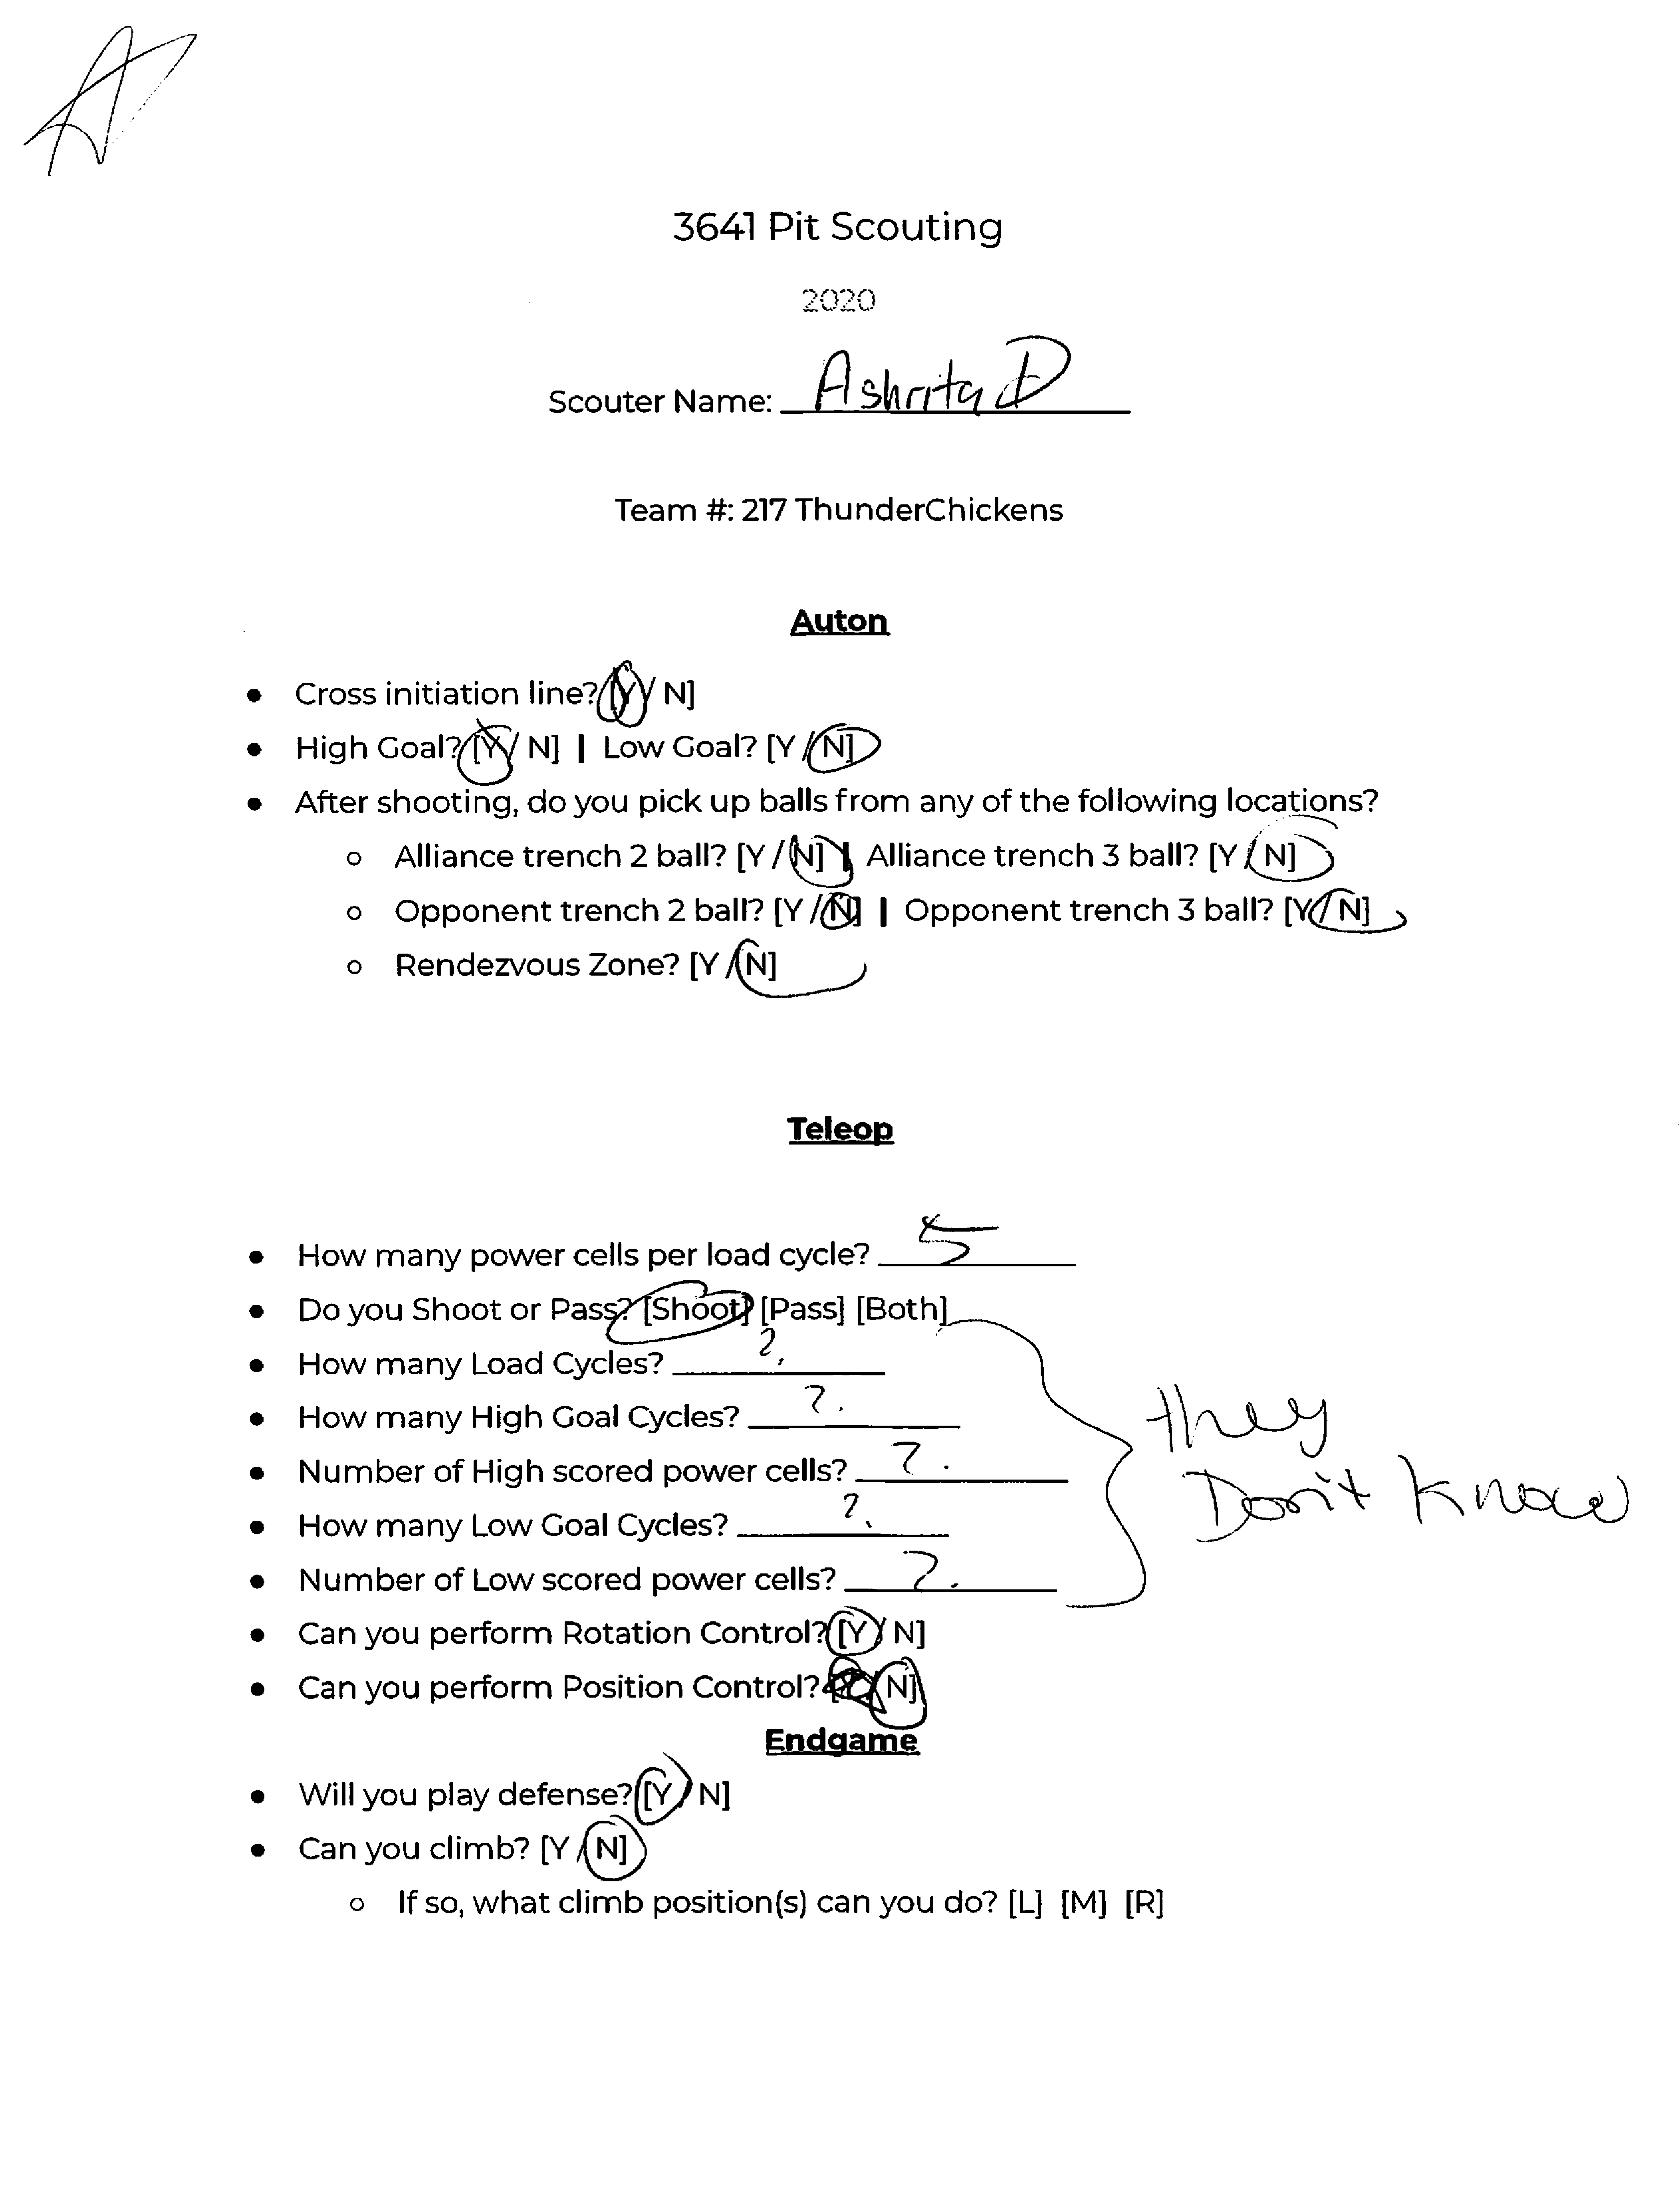 A
3641 Pit Scouting
2020
Scouter Name: Ashrita D
Team #: 217 ThunderChickens
Auton
● Cross initiation line? [Y / N]
● High Goal? [Y / N] | Low Goal? [Y / N]
● After shooting, do you pick up balls from any of the following locations?
○ Alliance trench 2 ball? [Y / N] | Alliance trench 3 ball? [Y / N]
○ Opponent trench 2 ball? [Y / N] | Opponent trench 3 ball? [Y / N]
○ Rendezvous Zone? [Y / N]
Teleop
● How many power cells per load cycle? 5
● Do you Shoot or Pass? [Shoot] [Pass] [Both]
● How many Load Cycles? ?
● How many High Goal Cycles? ?
● Number of High scored power cells? ?
● How many Low Goal Cycles? ?
● Number of Low scored power cells? ?
they
Don't know
● Can you perform Rotation Control? [Y / N]
● Can you perform Position Control? [Y / N]
Endgame
● Will you play defense? [Y / N]
● Can you climb? [Y / N]
○ If so, what climb position(s) can you do? [L] [M] [R]